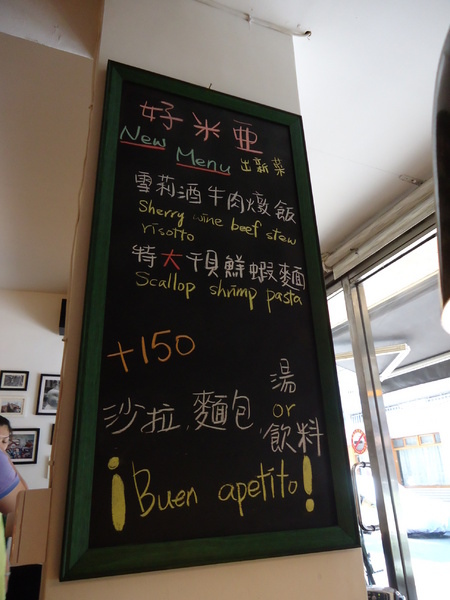 好米亜
New Menu 出新菜
雪莉酒牛肉燉飯
Sherry wine beef stew
risotto
特大干貝鮮蝦麵
Scallop shrimp pasta
+150
沙拉, 麵包, 湯 or 飲料
¡Buen apetito!